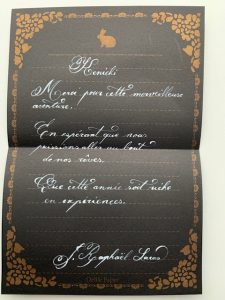 Merci pour cette merveilleuse
aventure.
En espérant que nous
puissions aller au bout
de nos rêves.
Que cette année soit riche
en experiences.
Raphaël